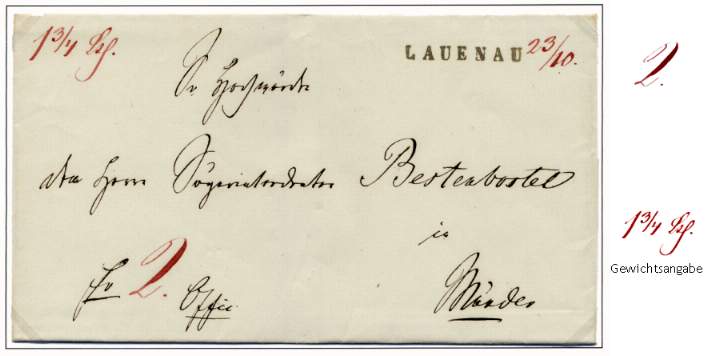 1¾
LAUENAU 23/10.
Sr. Hochwürden
dem Herrn Superintendenten Bestenbostel
in
2.
Münder
2.
1¾
Gewichtsangabe